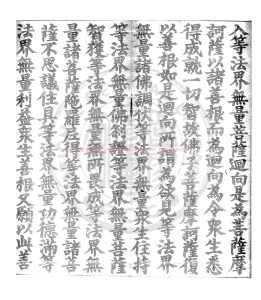 入等法界無量菩薩迴向是為菩薩摩
訶薩以諸善根而為迴向為令眾生悉
得成就一切智故佛子菩薩摩訶薩復
以善根如是迴向所謂為欲見等法界
無量諸佛調伏等法界無量眾生住持
等法界無量佛剎證等法界無量菩薩
智獲等法界無量無所畏成等法界無
量諸菩薩陀羅尼得等法界無量諸菩
薩不思議住具等法界無量功德滿等
法界無量利益眾生善根又願以此善